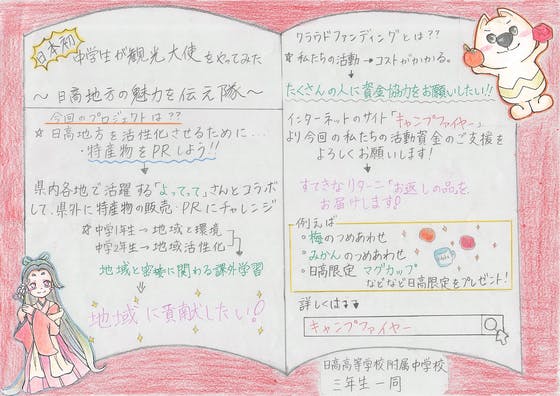 日本初
中学生が観光大使をやってみた
～日高地方の魅力を伝え隊～
今回のプロジェクトは??
☆日高地方を活性化させるために…
・特産物をPRしよう!!
県内各地で活躍する「よってって」さんとコラボ
して、県外に特産物の販売・PRにチャレンジ
☆中学1年生→地域と環境
中学2年生→地域活性化
地域と密接に関わる課外学習
地域に貢献したい!!
クラウドファンディングとは??
☆私たちの活動→コストがかかる。
たくさんの人に資金協力をお願いしたい!!
インターネットのサイト「キャンプファイヤー」
より今回の私たちの活動資金のご支援を
よろしくお願いします!
すてきなリターン「お返しの品を
お届けします!
例えば
・梅のつめあわせ
・みかんのつめあわせ
・日高限定マグカップ
などなど日高限定をプレゼント!
詳しくは
キャンプファイヤー
日高高等学校附属中学校
三年生一同